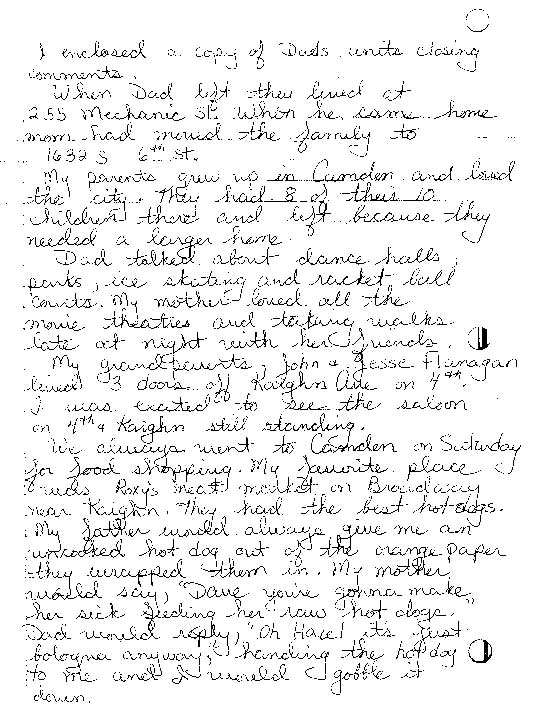 I enclosed a copy of Dads units closing
comments.
When Dad left they lived at
255 Mechanic St. When he came home
mom had moved the family to
1632 S 6th St.
My parents grew up in Camden and loved
the city. They had 8 of their 10
children there and left because they
needed a larger home.
Dad talked about dance halls,
parks, ice skating and racket ball
courts. My mother loved all the
movie theaties and taking walks
late at night with her friends.
My grandparents, John & Jesse Flanagan
lived 3 doors off Kaighn Ave on 4th.
I was excited to see the saloon
on 4th & Kaighn still standing.
We always went to Camden on Saturday
for food shopping. My favorite place
was Roxy's meat market on Broadway
near Kaighn. They had the best hot dogs.
My father would always give me an
uncooked hot dog out of the orange paper
they wrapped them in. My mother
would say, "Dave you're gonna make
her sick feeding her raw hot dogs."
Dad would reply, "Oh Hace! its just
bologna anyway," handing the hot dog
to me and I would gobble it
down.